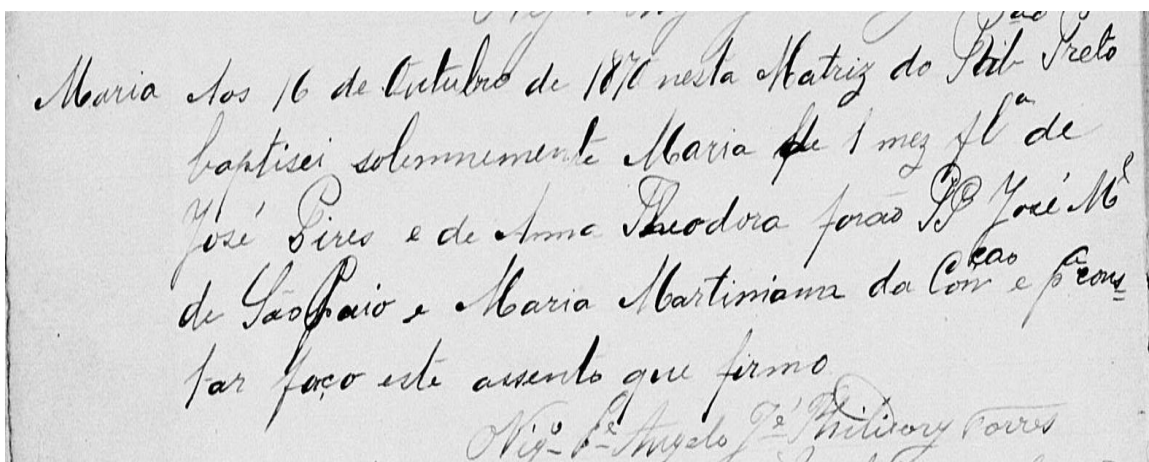 Maria Aos 16 de Outubro de 1870 nesta Matriz do Rib Preto
baptisei solemnemente Maria de 1 mez flª de
José Pires e de Anna Theodora forão PP José Mel
de São Paio e Maria Martiniana da Concão e pª cons=
tar faço este assento que firmo
Vigº Pe Angelo Jé Torres